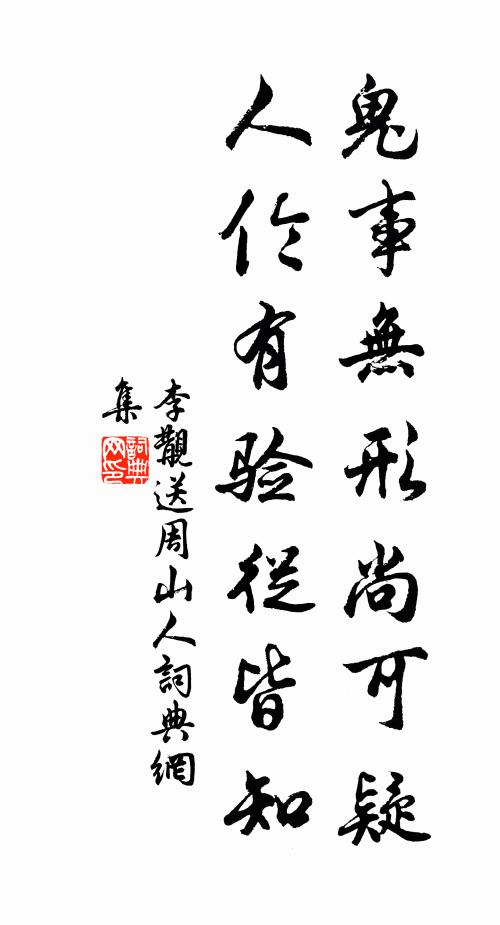 鬼事無形尚可疑
人伦有验從皆知
李觀送周山人詞典網
集
詞典
网印